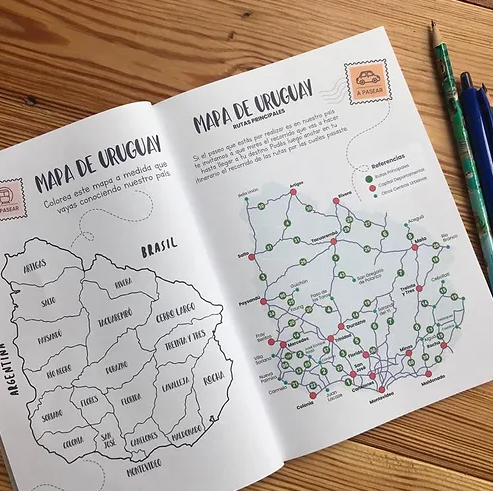 PASEAR
MAPA DE URUGUAY
Colorea este mapa a medida que
vayas conociendo nuestro país
BRASIL
ARGENTINA
ARTIGAS
SALTO
RIVERA
PAYSANDÚ
TACUAREMBÓ
CERRO LARGO
RÍO NEGRO
DURAZNO
TREINTA Y TRES
SORIANO
FLORES
FLORIDA
LAVALLEJA
ROCHA
COLONIA
SAN
JOSÉ
CANELONES
MALDONADO
MONTEVIDEO
MAPA DE URUGUAY
RUTAS PRINCIPALES
A PASEAR
Si el paseo que estás por realizar es en nuestro país
te invitamos a que vayas
hasta llegar a tu destino. Podés luego anotar en tu
itinerario el recorrido de las rutas por las cuales pasaste
Referencias
Rutas Principales
Capital Departamental
Otros Centros urbanos
Bella Unión
Artigas
Rivera
Salto
Tacuarembó
Aceguá
Melo
Río
Branco
San Gregorio
de Polanco
Paysandú
Guichón
Young
Treinta
Y Tres
Fray
Bentos
Mercedes
Durazno
Trinidad
Villa
Soriano
Nueva
Palmira
Carmelo
Florida
Minas
Rocha
Colonia
Juan
Lacaze
San
José
Canelones
Montevideo
Maldonado